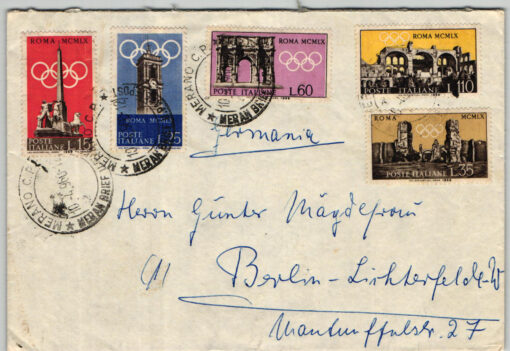 ROMA MCMLX
POSTE
ITALIANE L.15
ROMA MCMLX
POSTE
ITALIANE L.25
ROMA MCMLX
POSTE ITALIANE L.60
ROMA MCMLX
POSTE ITALIANE L.110
ROMA MCMLX
POSTE ITALIANE L.35
MERANO C.P. ★ MERAN BRIEF
MERANO C.P. ★ MERAN BRIEF
MERANO C.P. ★ MERAN BRIEF
Germania
Herrn Günter Mägdefrau
Berlin-Lichterfelde-W
Manteuffelstr. 27